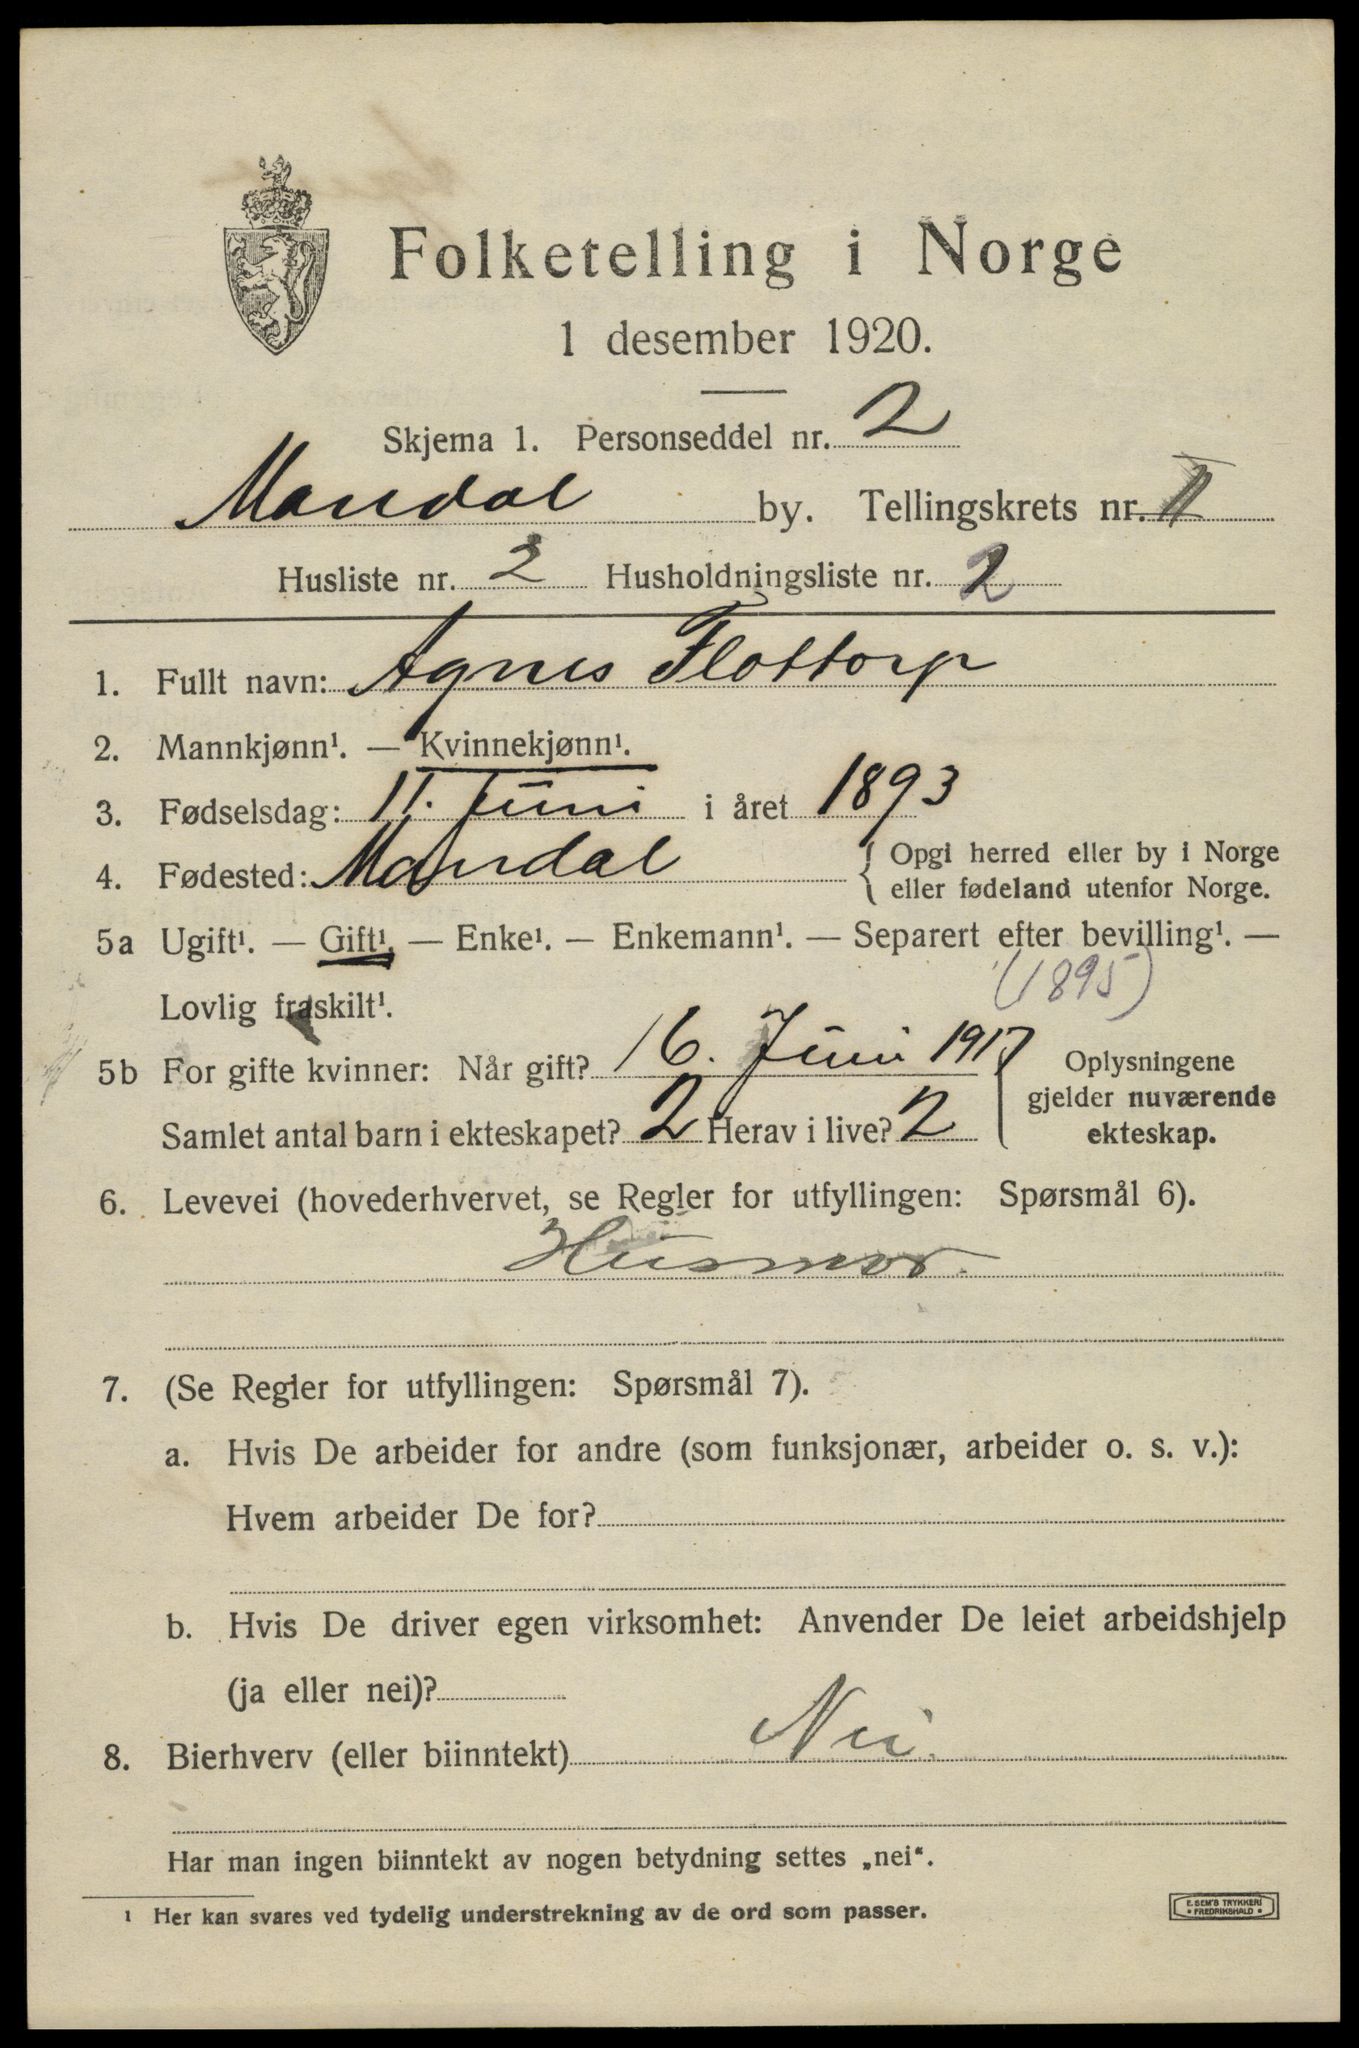 Folketelling i Norge
1 desember 1920.
Skjema 1. Personseddel nr. 2
Mandal by. Tellingskrets nr. II
Husliste nr. 2 Husholdningsliste nr. 2
1. Fullt navn: Agnes Flottorp
2. Mannkjønn¹. — Kvinnekjønn¹.
3. Fødselsdag: 11. Juni i året 1893
4. Fødested: Mandal { Opgi herred eller by i Norge
eller fødeland utenfor Norge.
5a Ugift¹. — Gift¹. — Enke¹. — Enkemann¹. — Separert efter bevilling¹. —
(1895)
Lovlig fraskilt¹.
5b For gifte kvinner: Når gift? 16. Juni 1917 Oplysningene
gjelder nuværende
Samlet antal barn i ekteskapet? 2 Herav i live? 2 ekteskap.
6. Levevei (hovederhvervet, se Regler for utfyllingen: Spørsmål 6).
Husmor.
7. (Se Regler for utfyllingen: Spørsmål 7).
a. Hvis De arbeider for andre (som funksjonær, arbeider o. s. v.):
Hvem arbeider De for?
b. Hvis De driver egen virksomhet: Anvender De leiet arbeidshjelp
(ja eller nei)?
8. Bierhverv (eller biinntekt) Nei.
Har man ingen biinntekt av nogen betydning settes „nei“.
¹ Her kan svares ved tydelig understrekning av de ord som passer.
E. SEM'S TRYKKERI
• FREDRIKSHALD •